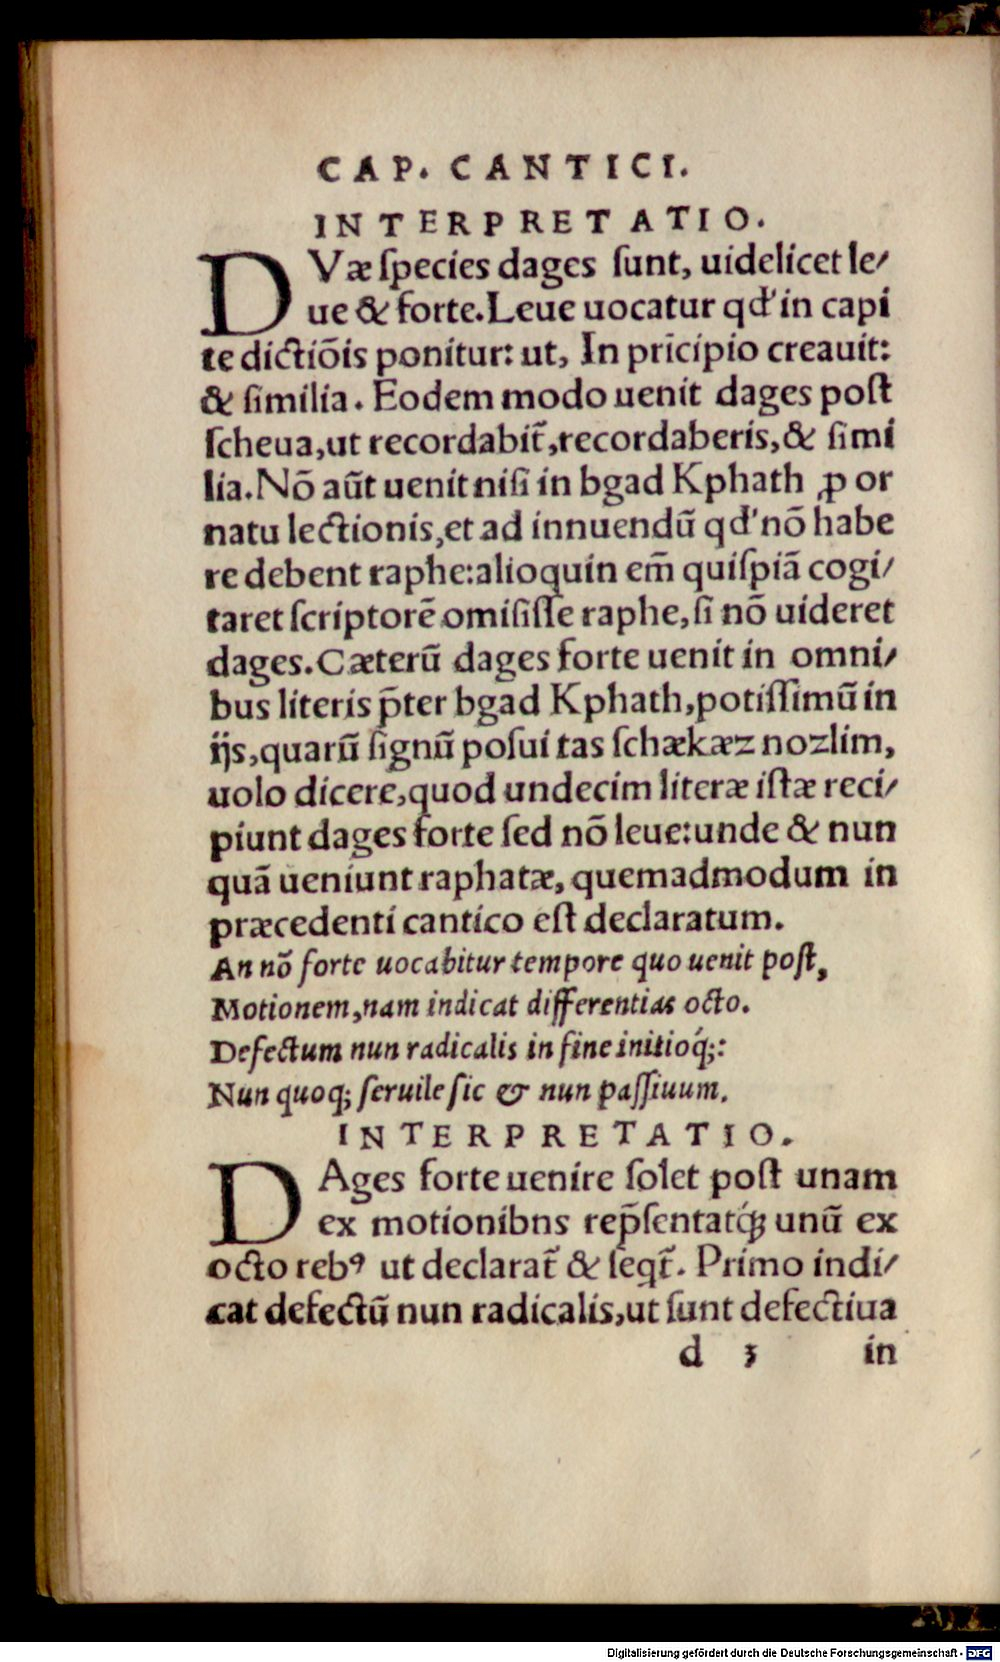 CAP. CANTICI.
INTERPRETATIO.
DVæ ſpecies dages ſunt, uidelicet le/
ue & forte. Leue uocatur qd' in capi
te dictiõis ponitur: ut, In pricipio creauit:
& ſimilia. Eodem modo uenit dages poſt
ſcheua, ut recordabit᷉, recordaberis, & ſimi
lia. Nõ aũt uenit niſi in bgad Kphath ꝓ or
natu lectionis, et ad innuendũ qd' nõ habe
re debent raphe: alioquin em̃ quiſpiã cogi/
taret ſcriptorẽ omiſiſſe raphe, ſi nõ uideret
dages. Cæterũ dages forte uenit in omni/
bus literis p̃ter bgad Kphath, potiſſimũ in
ijs, quarũ ſignũ poſui tas ſchækæz nozlim,
uolo dicere, quod undecim literæ iſtæ reci/
piunt dages forte ſed nõ leue: unde & nun
quã ueniunt raphatæ, quemadmodum in
præcedenti cantico eſt declaratum.
An nõ forte uocabitur tempore quo uenit poſt,
Motionem, nam indicat differentias octo.
Defectum nun radicalis in fine initioq́;:
Nun quoq; ſeruile ſic & nun paſſiuum.
INTERPRETATIO.
DAges forte uenire ſolet poſt unam
ex motionibns rep̃ſentatq́ꝫ unũ ex
octo rebꝰ ut declarat᷉ & ſeqt᷉. Primo indi/
cat defectũ nun radicalis, ut ſunt defectiua
d 3 in
Digitalisierung gefördert durch die Deutsche Forschungsgemeinschaft - DFG